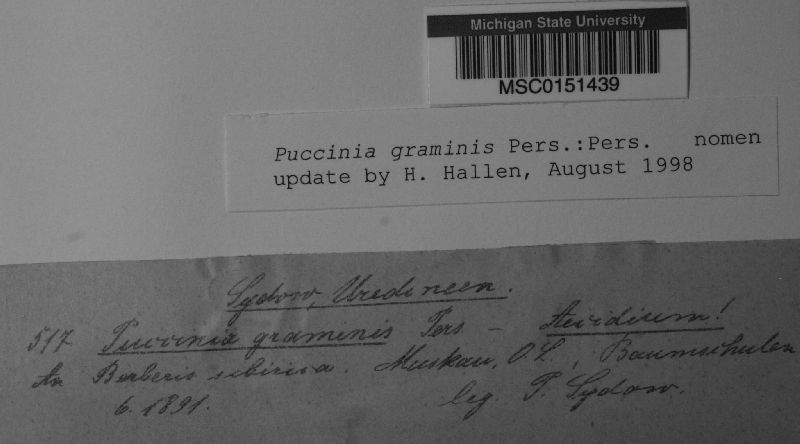 Michigan State University
MSC0151439
Puccinia graminis Pers.:Pers. nomen
update by H. Hallen, August 1998
Sydow, Uredineen.
517 Puccinia graminis Pers. — Aecidium!
An Berberis sibirica. Muskau, O.L., Baumschulen
6. 1891. leg. P. Sydow.